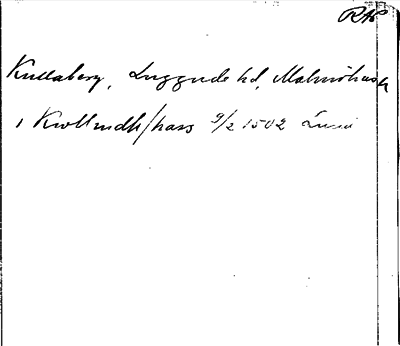 RAP
Kullaberg, Luggude hd, Malmöhus l
i Kwllindh/hass 9/2 1502 Lund